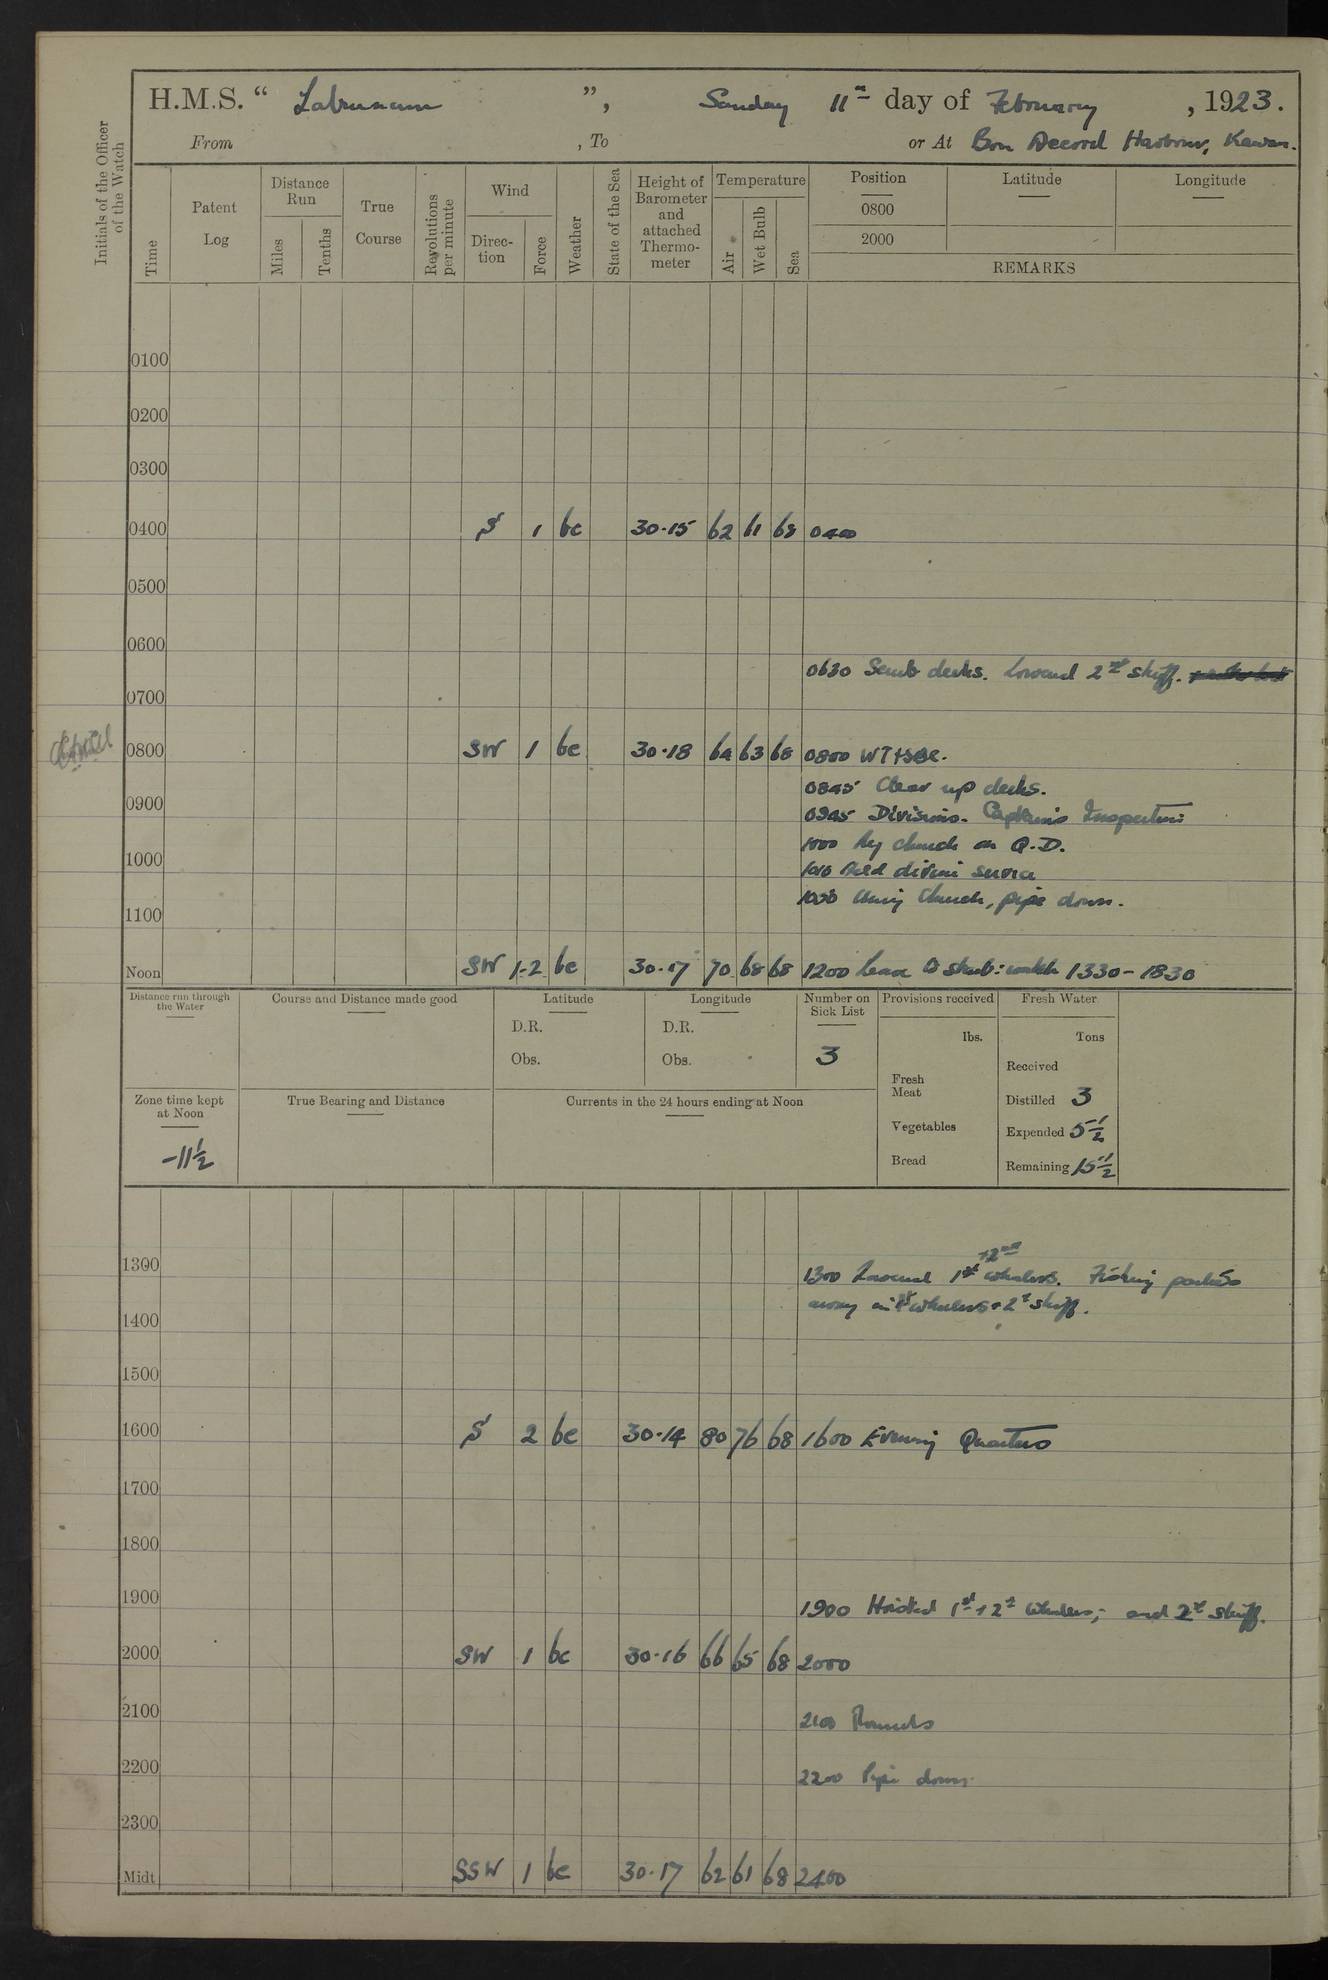 H.M.S. “ Laburnum ”, Sunday 11th day of February, 1923.
From , To or At Bon Accord Harbour, Kawau.
Initials of the Officer of the Watch
Time
Patent Log
Distance Run
Miles
Tenths
True Course
Revolutions per minute
Wind
Direc-tion
Force
Weather
State of the Sea
Height of Barometer and attached Thermo-meter
Temperature
Air
Wet Bulb
Sea
Position Latitude Longitude
0800
2000
REMARKS
0100
0200
0300
0400 S' 1 bc 30.15 62 61 68 0400
0500
0600
0630 Scrub decks. Lowered 2nd skiff.
0700
0800 SW 1 bc 30.18 64 63 68 0800
0845 Clear up decks.
0900
0945 Divisions. Captain's Inspection
1000 Rig Church on Q.D.
1000
1010 Held divine service
Church, pipe down.
1100
Noon SW 1-2 bc 30.17 70 68 68 1200 Leave to starb: watch 1330-1830
Distance run through the Water
Course and Distance made good
Latitude
D.R.
Obs.
Longitude
D.R.
Obs.
Number on Sick List
3
Provisions received
lbs.
Fresh Meat
Vegetables
Bread
Fresh Water
Tons
Received
Distilled 3
Expended 5½
Remaining 15½
Zone time kept at Noon
-11½
True Bearing and Distance
Currents in the 24 hours ending at Noon
+2nd
1300 1300 Lowered 1st whalers. Fishing parties
away in 1st whalers + 2nd skiff.
1400
1500
1600 S' 2 bc 30.14 80 76 68 1600 Evening Quarters
1700
1800
1900 1900 Hoisted 1st + 2nd whalers; and 2nd skiff.
2000 SW 1 bc 30.16 66 65 68 2000
2100 2100 Rounds
2200 2200 Pipe down.
2300
Midt. SSW 1 bc 30.17 62 61 68 2400